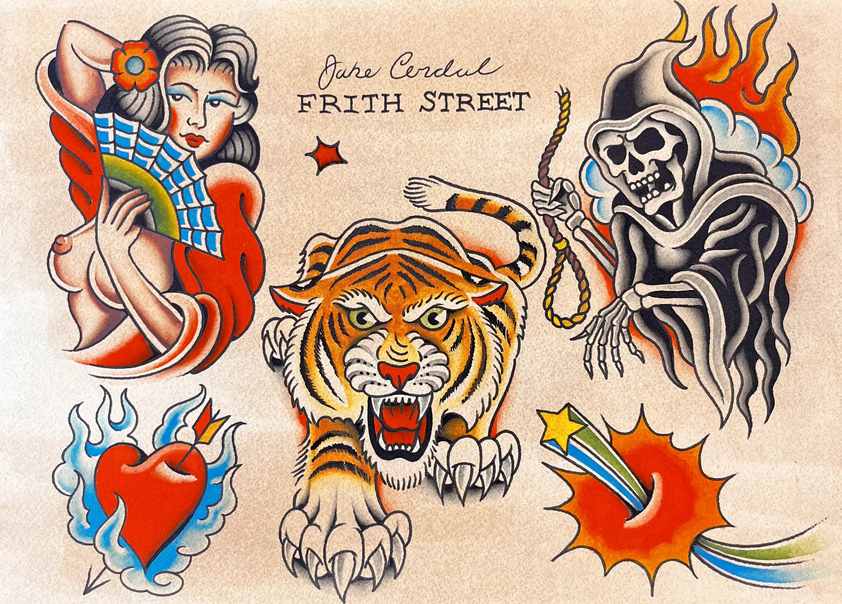 Jake Cordal
FRITH STREET